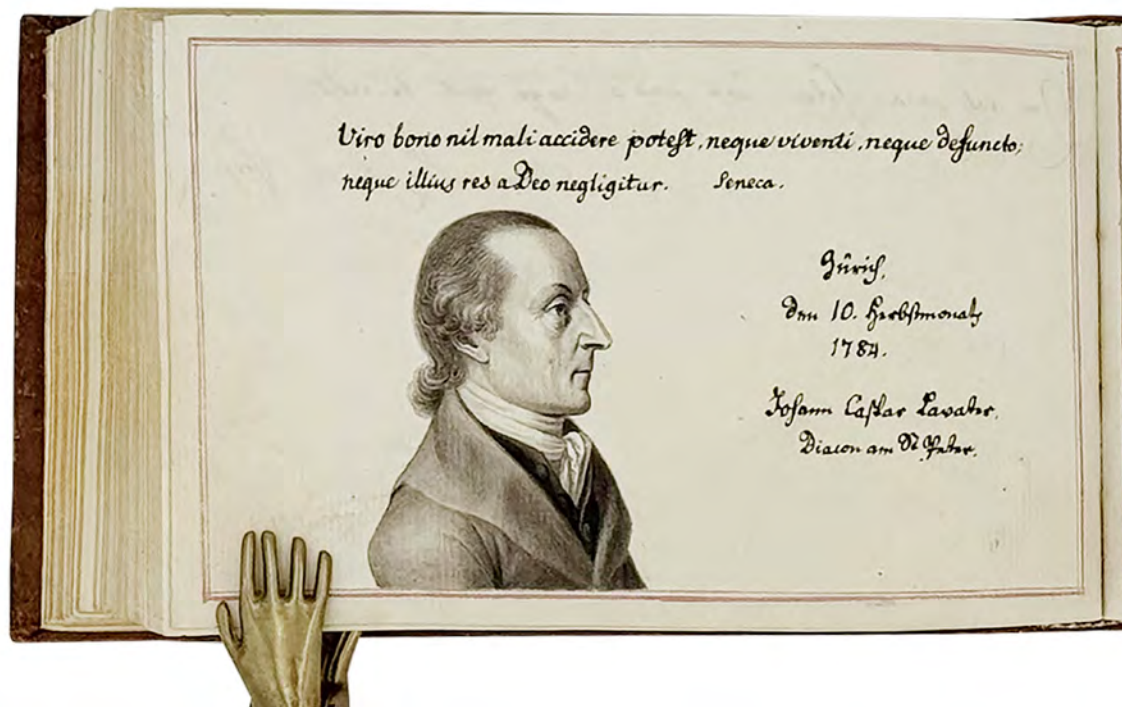 Viro bono nil mali accidere potest, neque viventi, neque defuncto;
neque illius res a Deo negligitur. Seneca.
Zürich,
den 10. Herbstmonats
1784.
Johann Caspar Lavater,
Diacon am St Peter.